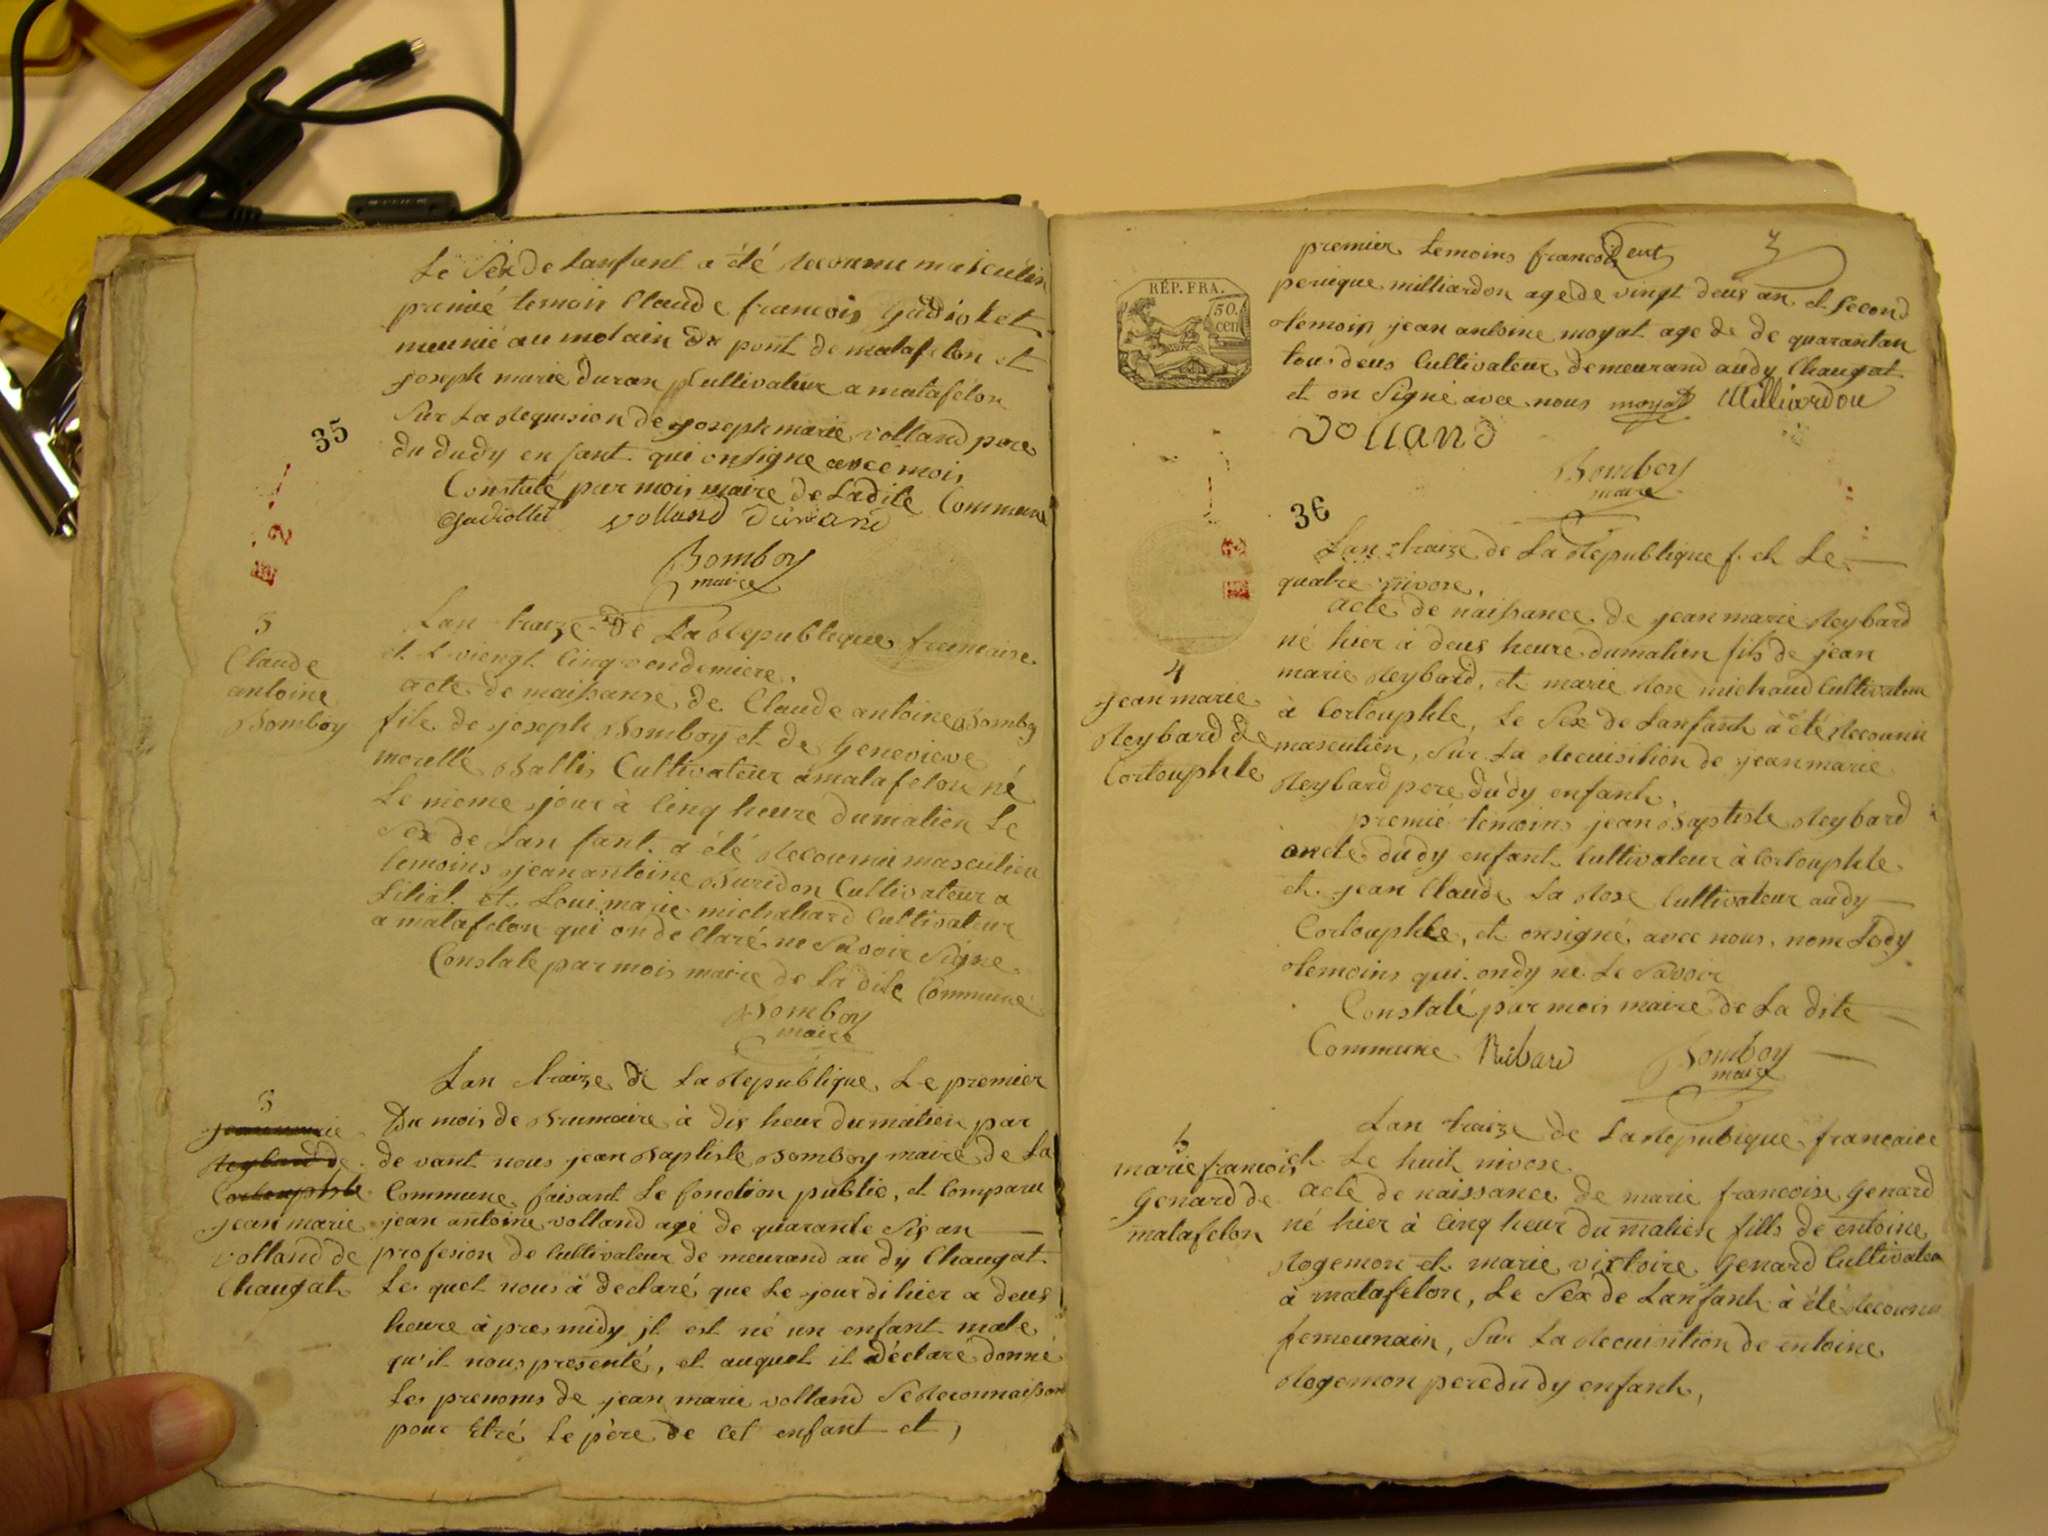 Le Sex de Lanfant a été Reconnu masculin
premié temoin Claude francois Gudiolet
meunié au molain du pont de matafelon et
joseph marie Duran Cultivateur a matafelon
Sur La Requision de joseph marie volland pere
du dudy enfant qui onsigne avec mois
35
Constaté par mois maire de La dite Commune
Gudiollet volland durand
Bomboy
maire
E 2
Lan traize de La Republique francaise
et le viengt cinq vendemiere,
3
Claude
antoine
Bomboy
acte de naissanse de Claude antoine Bomboy
fils de joseph Bomboy et de Genevieve
morelle Ballis Cultivateur a matafelon né
Le meme jour à Cinq heure dumatien Le
Sex de Lan fant a été Recounu masculien
temoins jean antoine Buridon Cultivateur a
Siliat et Loui marie michahard Cultivateur
a matafelon qui on declaré ne Savoir Signe
Constaté par mois maire de La dite Commune
Bomboy
maire
Lan traize de La Republique Le premier
3
jean marie
Reybard de
Cortouphle
jean marie
volland de
Chaugat
Du mois de Brumaire à dix heur dumatien par
de vant nous jean Baptiste Bomboy maire de La
Commune faisant Le fonction public, et Comparu
jean antoine volland agé de quarante Six an
profesion de Cultivateur de meurand au dy Chaugat
Le quel nous à declaré que Le jour di hier a deux
heure à pres midy jl est né un enfant male
qu'il nous presenté, et auquel il a déclaré donné
Les prenoms de jean marie volland Se Reconnaissan
pour Etré Le père de cet enfant et,
premier temoins francois
3
REP. FRA.
50.
cen
perique milliardon age de vingt deus an et Second
temoin jean antoine moyat age de de quarantan
tous deus Cultivateur demeurand audy Chaugat
et on Signé avec nous moyat Milliardon
volland
Bomboy
maire
36
E 3
Lan traize de La Republique f. et Le
quatre nivose,
acte de naissance de jean marie Reybard
né hier à deus heure dumatien fils de jean
marie Reybard, et marie Rose michaud Cultivateur
4
jean marie
Reybard de
Cortouphle
à Cortouphle, Le Sex de Lanfant à été Recounu
masculien, Sur La Recuisition de jean marie
Reybard pere dudy enfant,
premié temoins jean Baptiste Reybard
oncle dudy enfant Cultivateur à Cortouphle
et jean Claude La Rose Cultivateur audy
Cortouphle, et onsigné avec nous, nom Ledy
temoins qui ondy ne Le Savoir
Constaté par mois maire de La dite
Commune Ribard Bomboy
maire
Lan traize de La Repubique francaice
5
marie francois
Genard de
matafelon
et Le huit nivose
acte de naissance de marie francoise Genard
né hier à Cinq heur du matien fills de entoine
Rogemon et marie victoire Genard Cultivateu
à matafelon, Le Sex de Lanfant à été Recounu
femeunain, Sur La Recuisition de entoine
Rogemon pere dudy enfant,